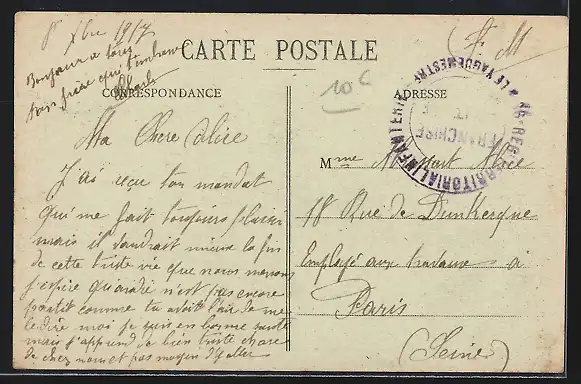 Xbre 1917
Bonjour a tous
ton frère qui t'embrasse
Charles
CARTE POSTALE
F. M
10 c
CORRESPONDANCE
ADRESSE
Ma Chere Alice
J'ai reçu ton mandat
qui me fait toujours plaisir
mais il vaudrait mieux la fin
de cette triste vie que nous menons
j'espère quandé n'est pas encore
partit comme tu avait l'air de me
le dire moi je suis en bonne santé
mais j'apprend de bien triste chose
de chez nous et pas moyen d'y aller
Mme Alice
18 Rue de Dunkerque
Employé aux travaux a
Paris
(Seine)
16 TERRITORIAL INFANTERIE
LE VAGUEMESTRE
FRANCHISE